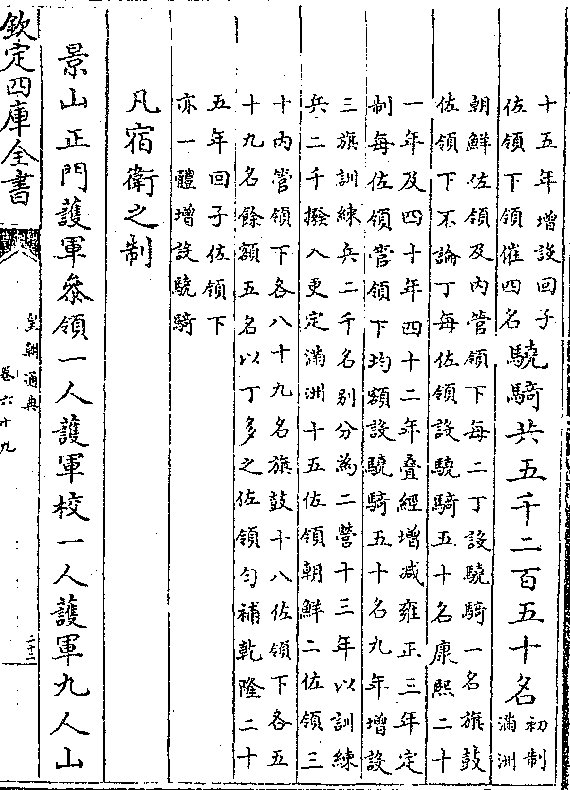 十五年增設回子
佐領下領催四名
驍騎共五千二百五十名
初制
滿洲
朝鮮佐領及内管領下每二丁設驍騎一名旗鼓
佐領下不論丁每佐領設驍騎五十名康熙二十
一年及四十年四十二年疊經增减雍正三年定
制每佐領管領下均額設驍騎五十名九年增設
三旗訓練兵二千名别分為二營十三年以訓練
兵二千撥入更定滿洲十五佐領朝鮮二佐領三
十内管領下各八十九名旗鼓十八佐領下各五
十九名餘額五名以丁多之佐領匀補乾隆二十
五年回子佐領下
亦一體增設驍騎
凡宿衛之制
景山正門護軍叅領一人護軍校一人護軍九人山
欽定四庫全書
皇朝通典
卷六十九